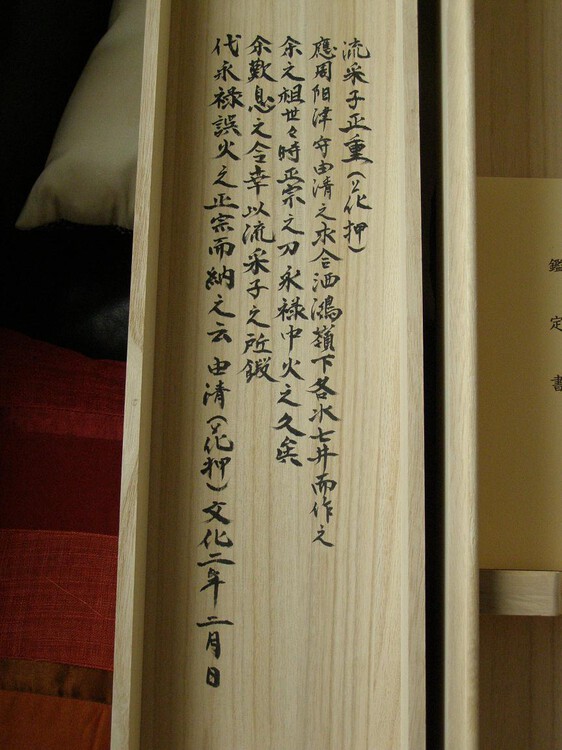 流采子正重(花押)
應周防津守由清之求合洒鴻嶺下各水七井而作之
余之祖世々時正宗之刀永禄中火之久矣
余歎息之合幸以流采子之所鍛
代永禄誤火之正宗而納之云 由清(花押)文化二年二月日
鑑定書